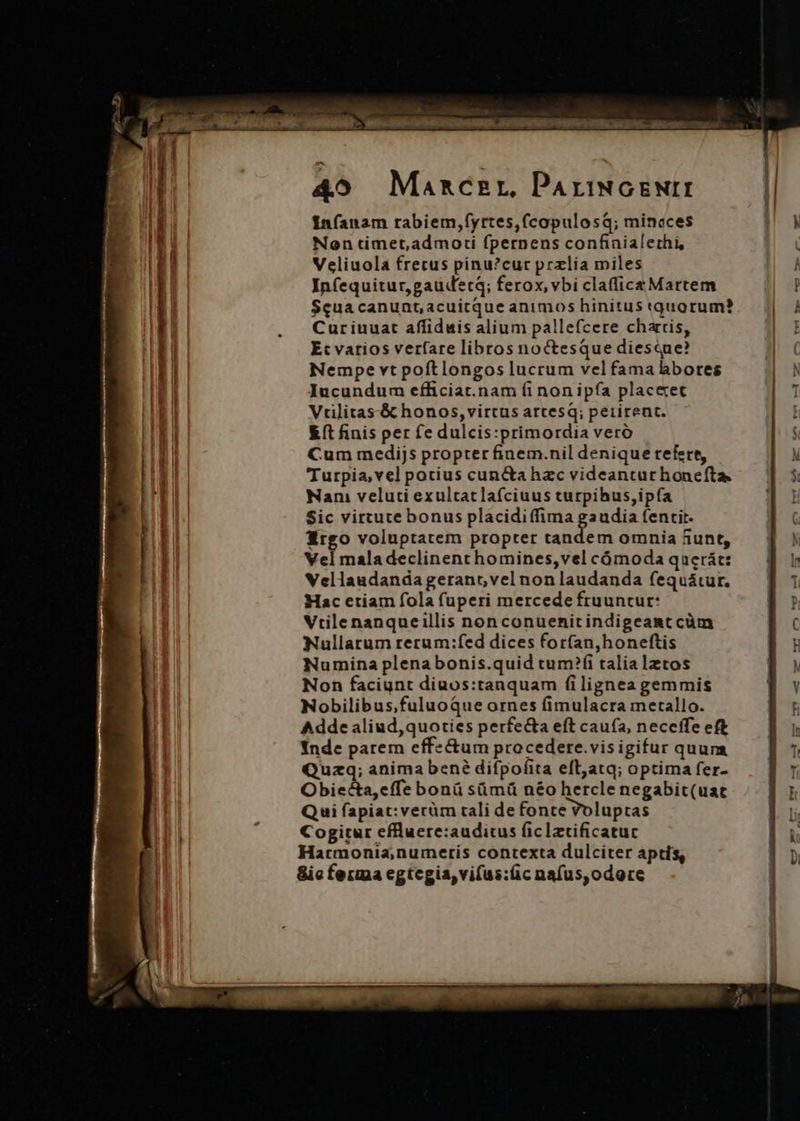 40 MARCEL. PALINGENII
Insanam rabiem,syrtes,scopulosq; minaces
Non timet,admoti spernens confinia lethi,
Veliuola fretus pinu?cur prælia miles
Insequitur,gaudetq́; ferox, vbi classica Martem
Sæua canunt,acuitque animos hinitus equorum?
Cur iuuat assiduis alium pallescere chartis,
Et varios versare libros noctesque diesque?
Nempe vt post longos lucrum vel fama labores
Iucundum efficiat.nam si non ipsa placeret
Vtilitas & honos,virtus artesq; perirent.
Est finis per se dulcis:primordia verò
Cum medijs propter finem.nil denique refert,
Turpia,vel potius cuncta hæc videantur honesta.
Nam veluti exultat lasciuus turpibus,ipsa
Sic virtute bonus placidissima gaudia sentit.
Ergo voluptatem propter tandem omnia fiunt,
Vel mala declinent homines,vel cómoda quærát:
Vel laudanda gerant,vel non laudanda sequátur.
Hac etiam sola superi mercede fruuntur:
Vtile nanque illis non conuenit indigeant cùm
Nullarum rerum:sed dices forsan,honestis
Numina plena bonis.quid tum?si talia lætos
Non faciunt diuos:tanquam si lignea gemmis
Nobilibus,fuluoque ornes simulacra metallo.
Adde aliud,quoties perfecta est causa, necesse est
Inde parem effectum procedere.vis igitur quum
Quæq; anima benè disposita est,atq; optima fer-
Obiecta,esse bonū sūmū néo hercle negabit(uat
Qui sapiat:verùm tali de fonte voluptas
Cogitur effluere:auditus sic lætificatur
Harmonia,numeris contexta dulciter aptis,
Sic forma egregia,visus:sic nasus,odore